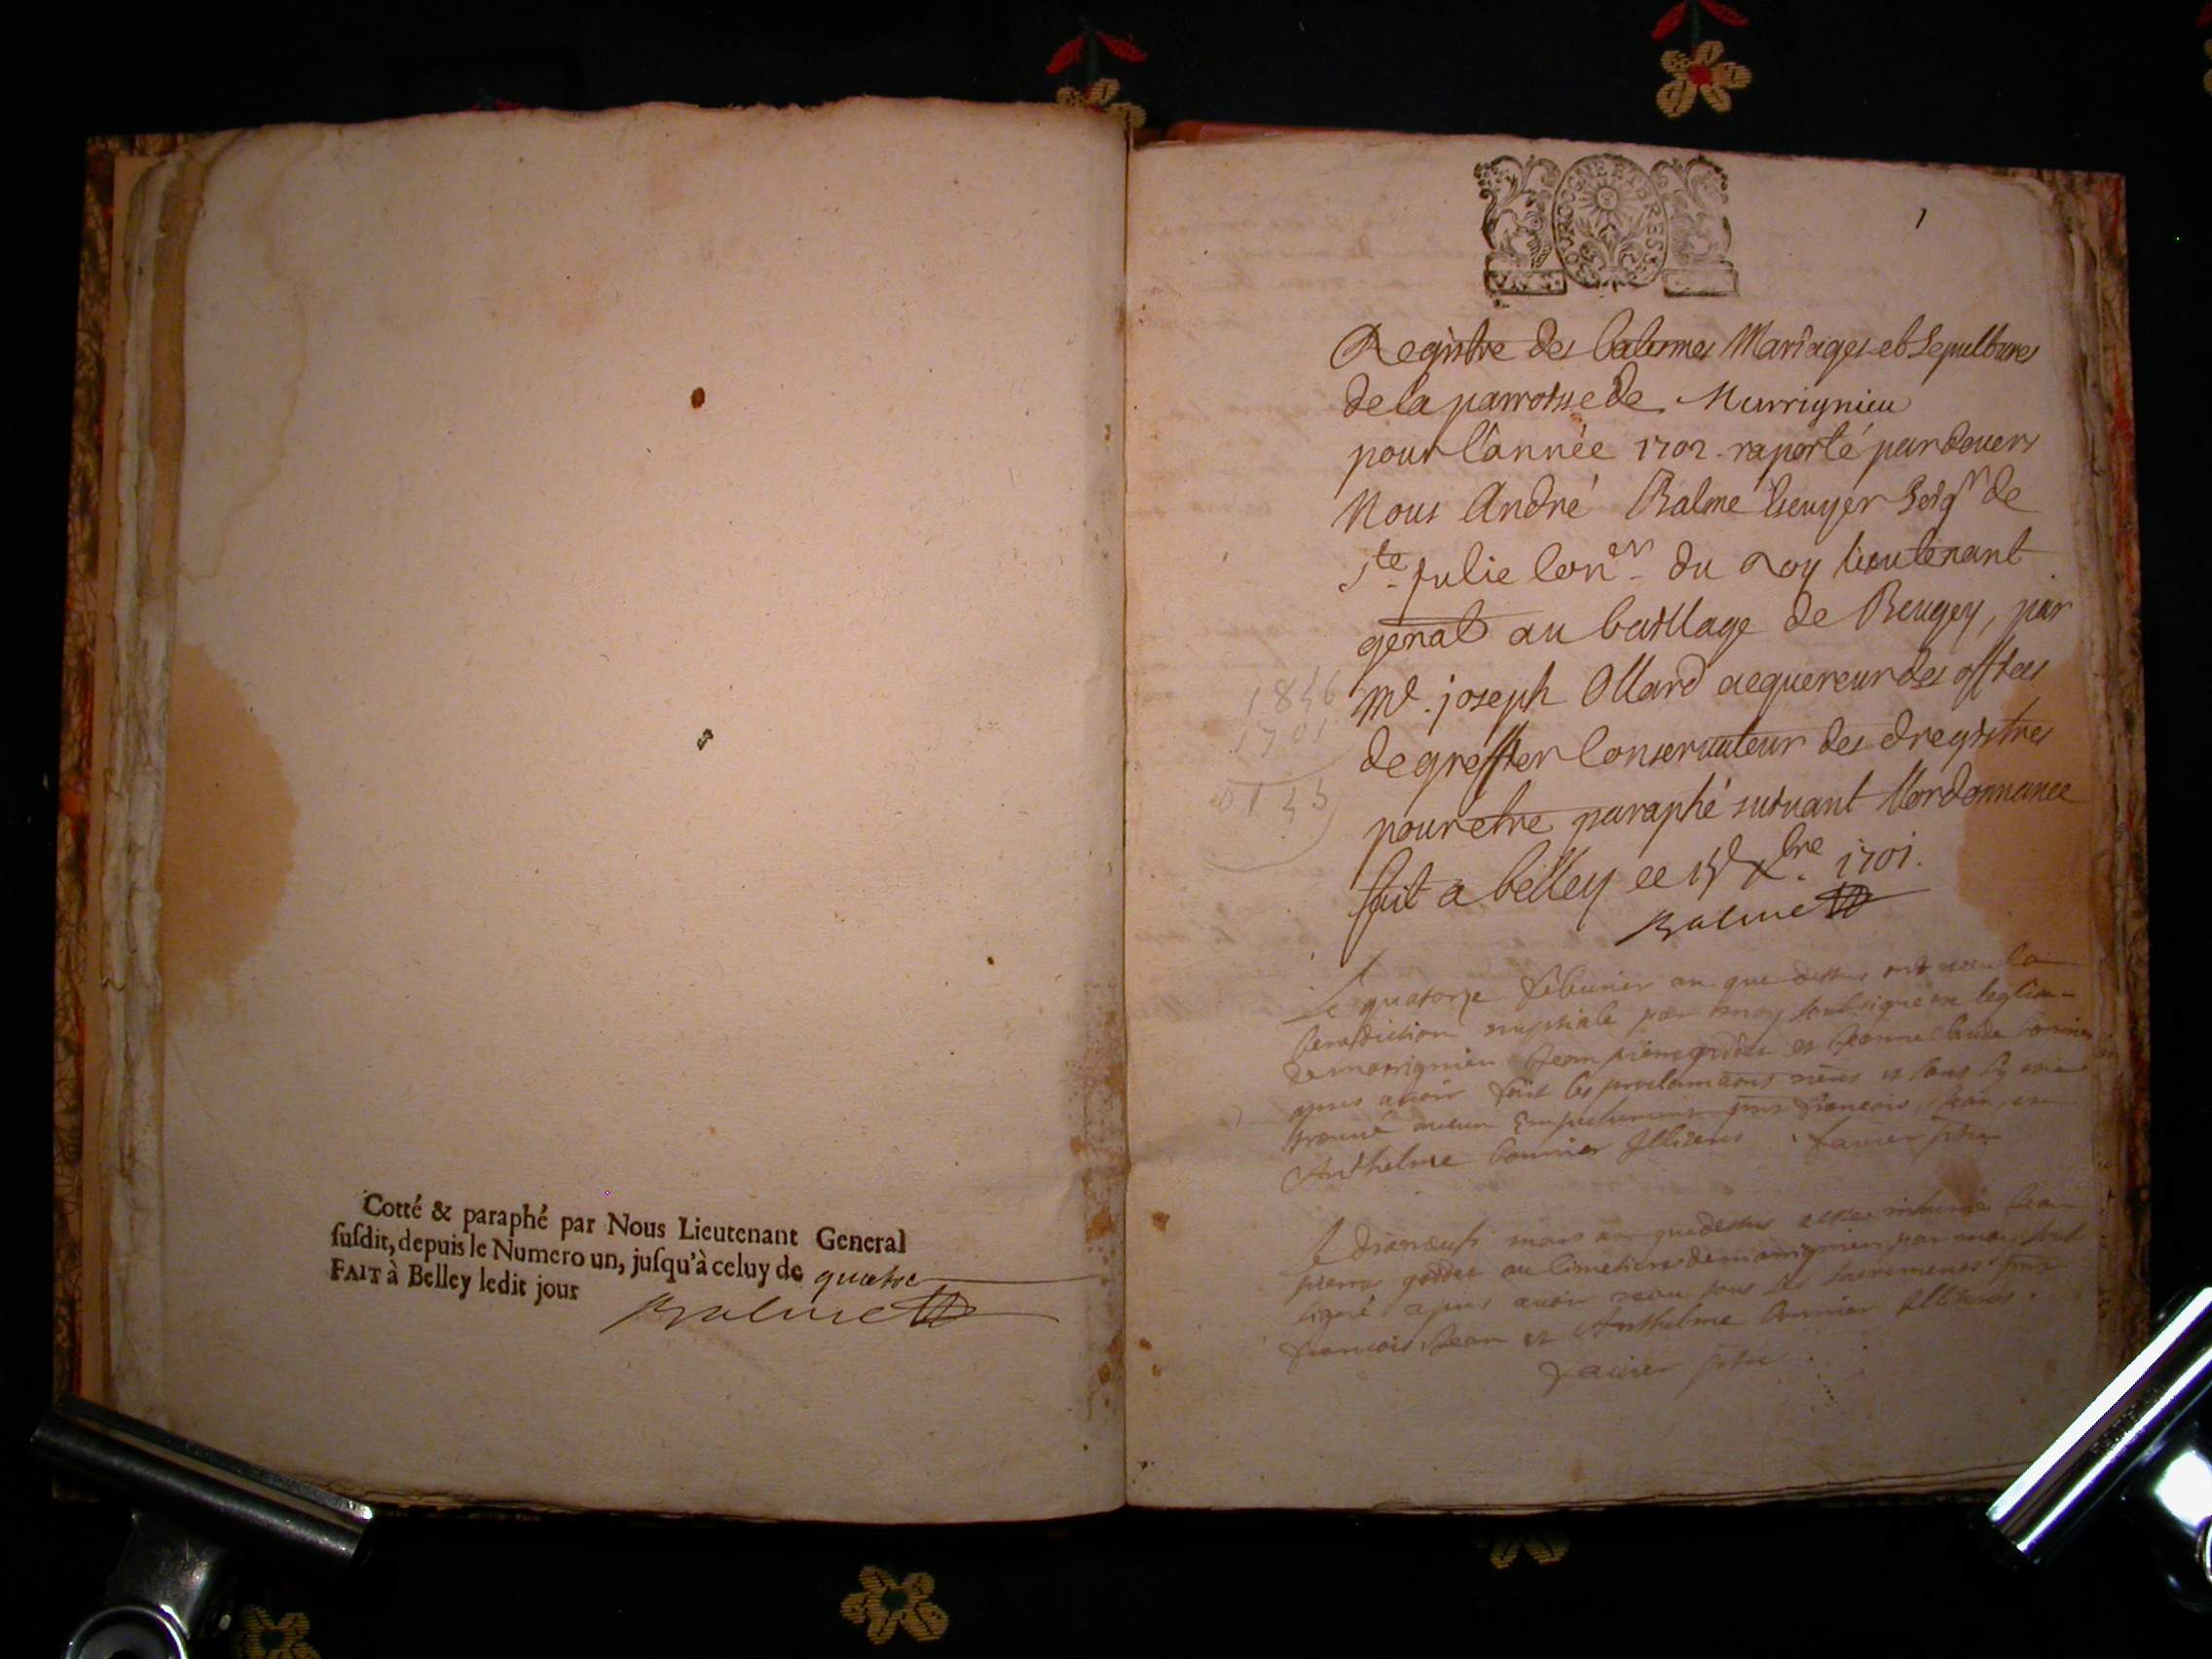 Cotté & paraphé par Nous Lieutenant General
ſuſdit, depuis le Numero un, juſqu'à celuy de quatre
FAIT à Belley ledit jour
Balme
BOURGOGNE ET BRESSE
1
Registre des batesmes Mariages et Sepultures
de la parroisse de Murrignieu
pour l'année 1702 raporté pardevers
Nous André Balme Escuyer Seigr de
Ste Julie Coner du Roy lieutenant
genal au bailliage de Beugey, par
Me joseph Ollard acquereur des offices
de greffier Conservateur des dregistres
pour etre paraphé suivant l'ordonnance
fait a belley ce 15 Xbre 1701.
Balme
1846
1701
0145
Le quatorze febvrier an que dessus ont receu la
benediction nuptiale par moy soubsigné en leglise
de marrignieu Jean pierre et Jeanne Claude bonnier
apres avoir fait les proclamaons et sans sy estre
trouvé aucun Empechement pnts francois, Jean, et
Anthelme bonnier Illiteres. favier ptre
Le dixneufv mars an que dessus a esté inhumé Jean
pierre au Cimetiere de marrignieu par moy soub
signé apres avoir receu tous les Sacremens pnts
francois Jean et Anthelme bonnier Illiteres.
favier ptre